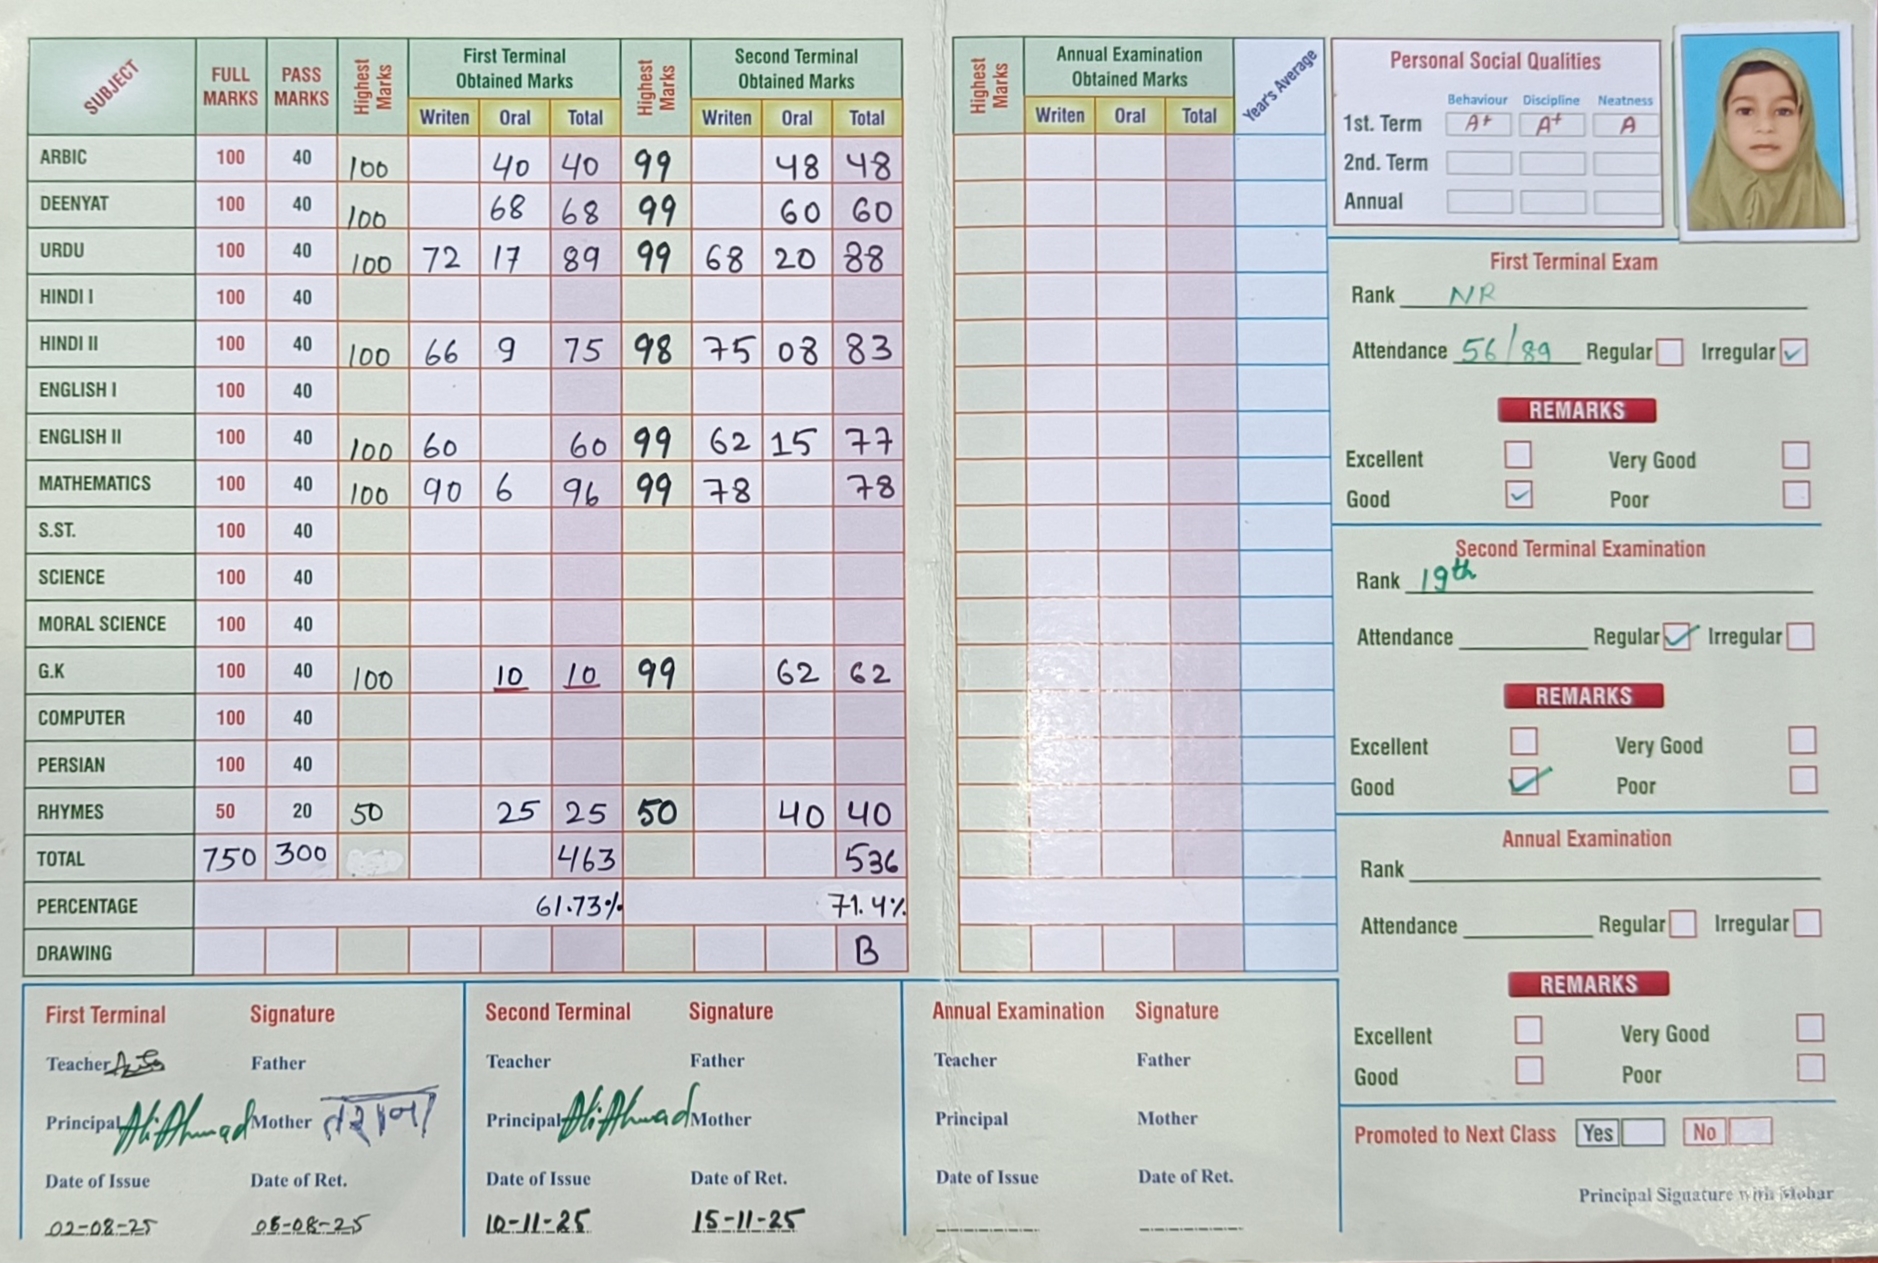 SUBJECT FULL MARKS PASS MARKS Highest Marks First Terminal Obtained Marks Writen Oral Total Highest Marks Second Terminal Obtained Marks Writen Oral Total Highest Marks Annual Examination Obtained Marks Writen Oral Total Year's Average
ARBIC 100 40 100 40 40 99 48 48
DEENYAT 100 40 100 68 68 99 60 60
URDU 100 40 100 72 17 89 99 68 20 88
HINDI I 100 40
HINDI II 100 40 100 66 9 75 98 75 08 83
ENGLISH I 100 40
ENGLISH II 100 40 100 60 60 99 62 15 77
MATHEMATICS 100 40 100 90 6 96 99 78 78
S.ST. 100 40
SCIENCE 100 40
MORAL SCIENCE 100 40
G.K 100 40 100 10 10 99 62 62
COMPUTER 100 40
PERSIAN 100 40
RHYMES 50 20 50 25 25 50 40 40
TOTAL 750 300 463 536
PERCENTAGE 61.73% 71.4%
DRAWING B
First Terminal Signature
Teacher Father
Principal Ali Ahmad Mother तराना
Date of Issue Date of Ret.
02-08-25 05-08-25
Second Terminal Signature
Teacher Father
Principal Ali Ahmad Mother
Date of Issue Date of Ret.
10-11-25 15-11-25
Annual Examination Signature
Teacher Father
Principal Mother
Date of Issue Date of Ret.
Personal Social Qualities
Behaviour Discipline Neatness
1st. Term A+ A+ A
2nd. Term
Annual
First Terminal Exam
Rank NR
Attendance 56/89 Regular Irregular ✓
REMARKS
Excellent Very Good
Good ✓ Poor
Second Terminal Examination
Rank 19th
Attendance Regular ✓ Irregular
REMARKS
Excellent Very Good
Good ✓ Poor
Annual Examination
Rank
Attendance Regular Irregular
REMARKS
Excellent Very Good
Good Poor
Promoted to Next Class Yes No
Principal Signature with Mohar